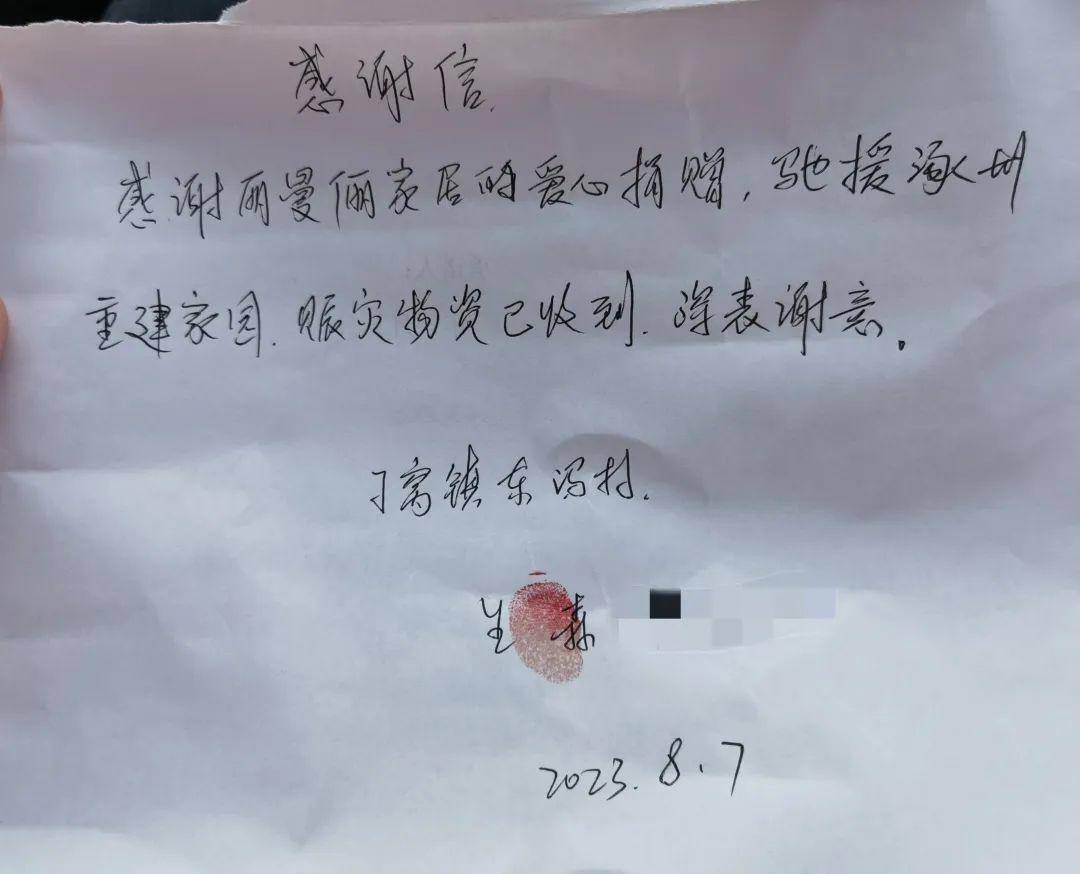 感谢信.
感谢丽曼俪家居的爱心捐赠,驰援涿州
重建家园.赈灾物资已收到.深表谢意。
刁窝镇东冯村.
森
2023.8.7